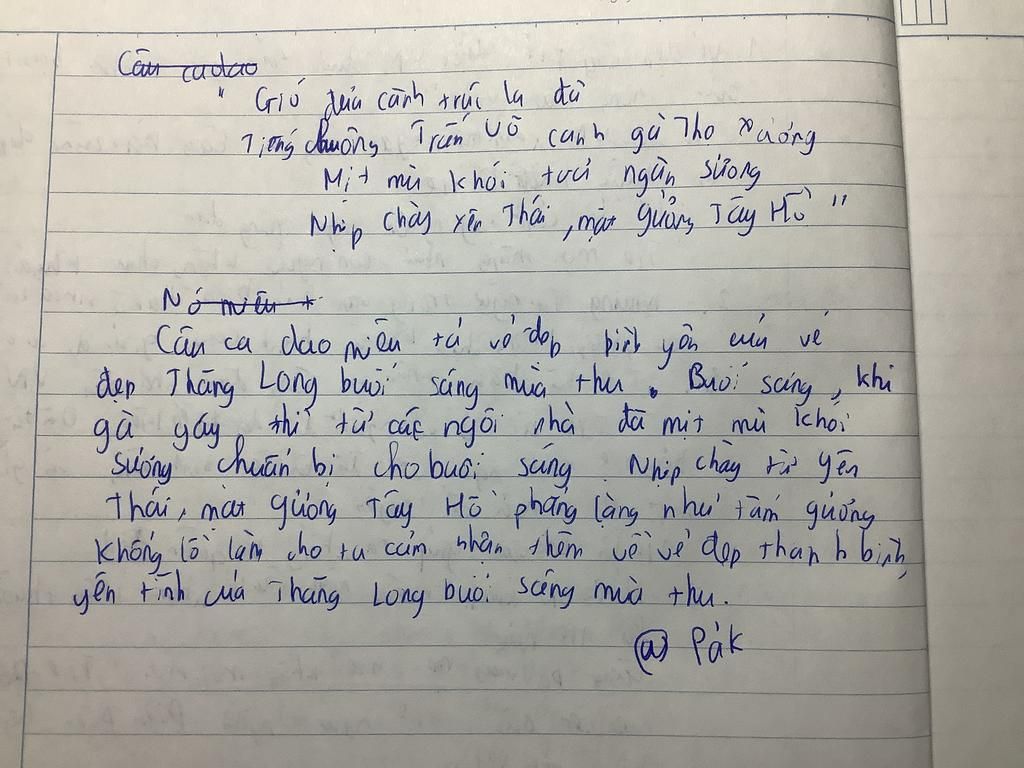 Câu ca dao
" Gió đưa cành trúc la đà
Tiếng chuông Trấn Võ canh gà Thọ Xương
Mịt mù khói tưới ngàn sương
Nhịp chày Yên Thái, mặt gương Tây Hồ "
Nó miêu t
Câu ca dao miêu tả vẻ đẹp bình yên của vẻ
đẹp Thăng Long buổi sáng mùa thu. Buổi sáng, khi
gà gáy, thì từ các ngôi nhà đã mịt mù khói
sương chuẩn bị cho buổi sáng. Nhịp chày từ Yên
Thái, mặt gương Tây Hồ phẳng lặng như tấm gương
khổng lồ làm cho ta cảm nhận thêm về vẻ đẹp thanh bình,
yên tĩnh của Thăng Long buổi sáng mùa thu.
@ Pák